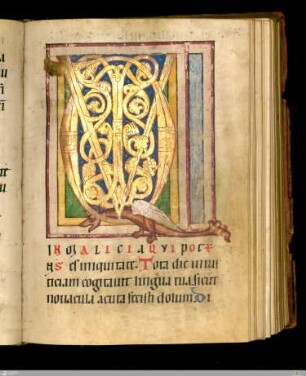 IN MALICIA QVI POTE
NS es iniquitate. Tota die inius
ticiam cogitauit lingua tua sicut
nouacula acuta fecisti dolum. Di